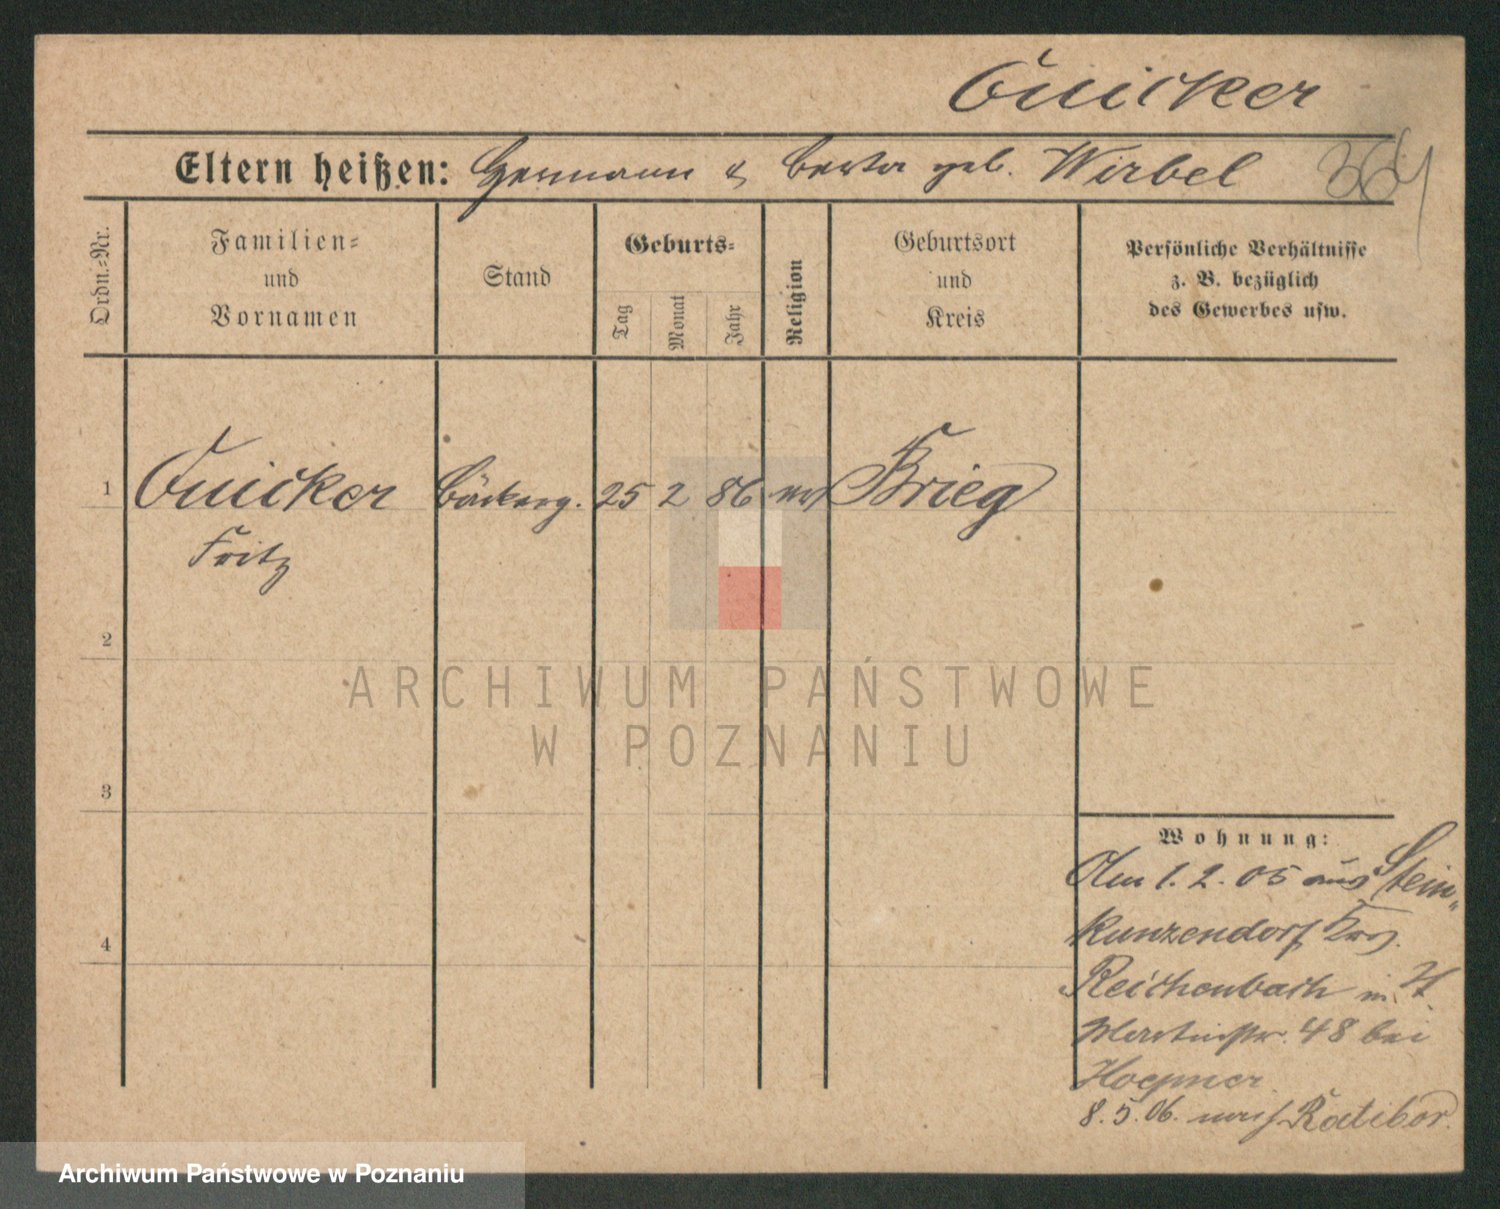 Quicker
Eltern heißen: Hermann & Berta geb. Wirbel 364
Ordn.-Nr.
Familien- und Vornamen
Stand
Geburts-
Tag
Monat
Jahr
Religion
Geburtsort und Kreis
Persönliche Verhältnisse z. B. bezüglich des Gewerbes usw.
1 Quicker Bäckerg. 25 2 86 Brieg
Fritz
2
3
4
Wohnung:
1. 2. 05 aus Stein-
kunzendorf Krs.
Reichenbach in
Martinstr. 48 bei
Hoepner
8. 5. 06. nach Ratibor.
ARCHIWUM PAŃSTWOWE
W POZNANIU
Archiwum Państwowe w Poznaniu